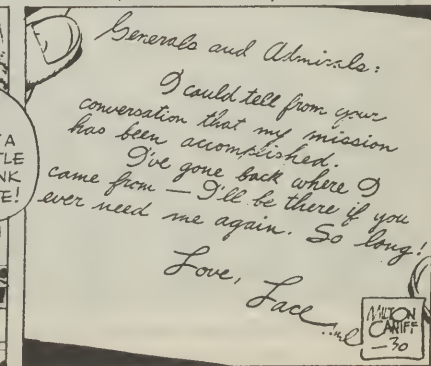 Generals and Admirals:
I could tell from your
conversation that my mission
has been accomplished.
I've gone back where I
came from — I'll be there if you
ever need me again. So long!
Love, Lace
MILTON
CANIFF
—30
A
TLE
NK
E!